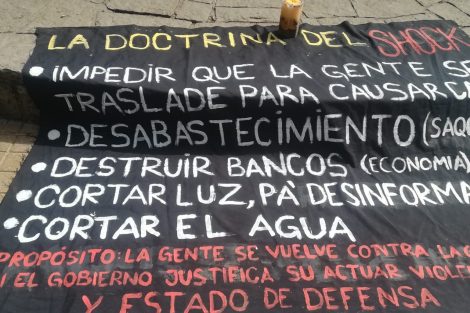 LA DOCTRINA DEL SHOCK
• IMPEDIR QUE LA GENTE SE
TRASLADE PARA CAUSAR
• DESABASTECIMIENTO (SAQ
• DESTRUIR BANCOS (ECONOMIA)
• CORTAR LUZ, PA' DESINFORMA
• CORTAR EL AGUA
PROPÓSITO: LA GENTE SE VUELVE CONTRA LA
I EL GOBIERNO JUSTIFICA SU ACTUAR VIOLE
Y ESTADO DE DEFENSA